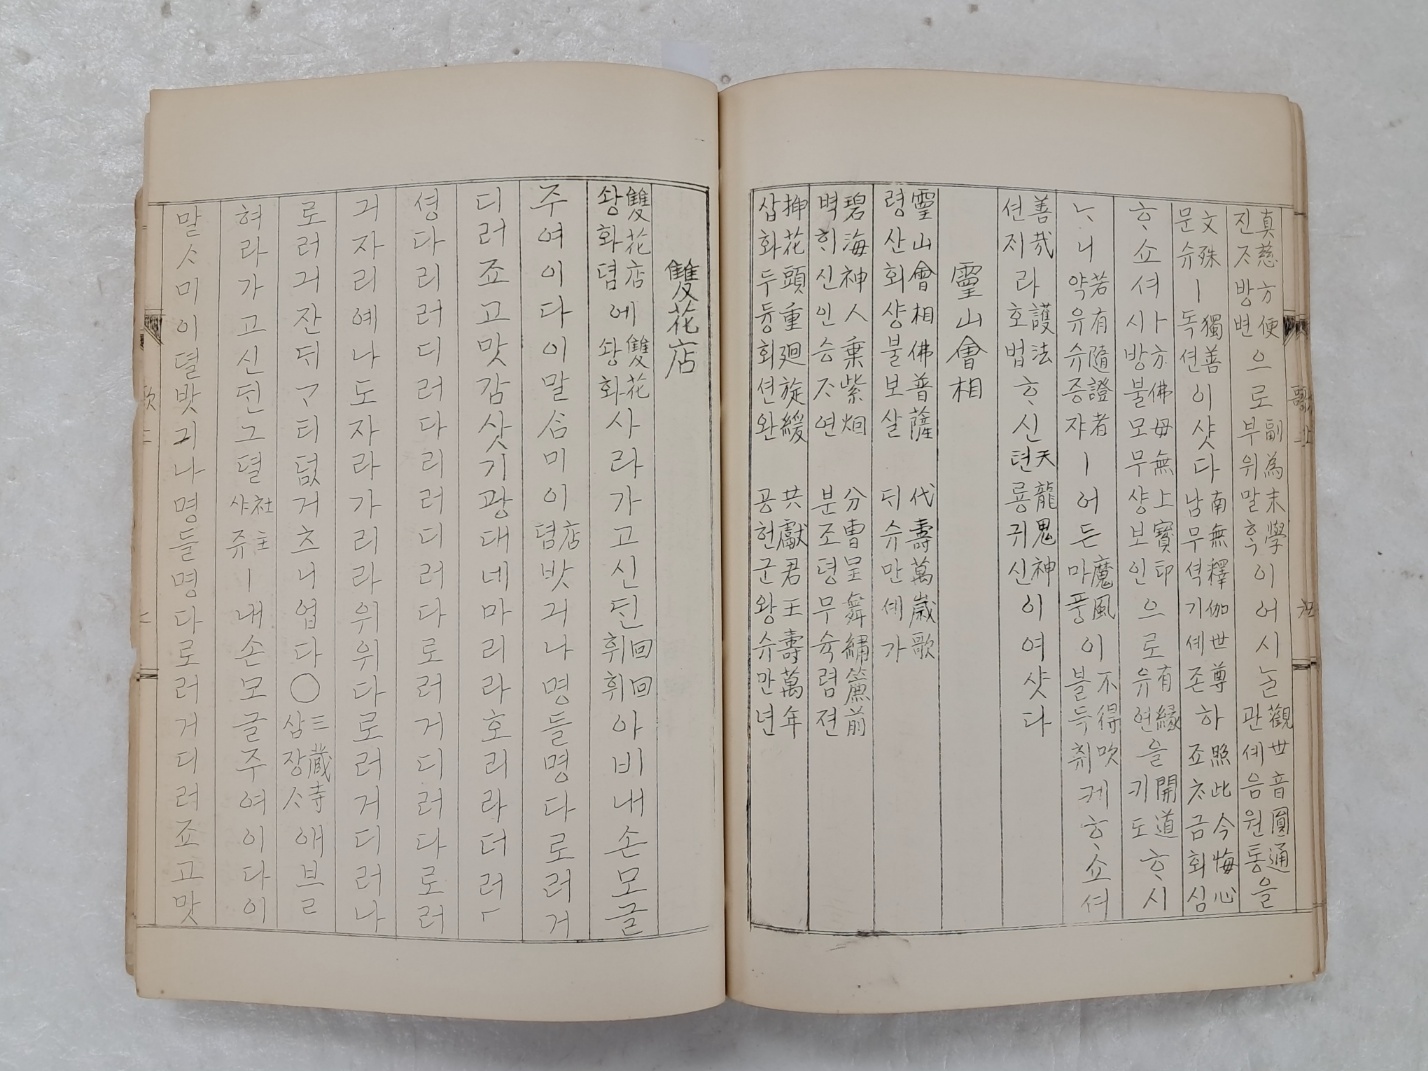 真慈方便진ᄌᆞ방변으로副為末學부위말ᄒᆞᆨ이어시ᄂᆞᆯ觀世音圓通관셰음원통을
文殊문슈ㅣ獨善독션이샷다南無釋伽世尊남무셕기셰존하照此今悔心죠ᄎᆞ금회심
ᄒᆞ쇼셔方佛母無上寶印시방불모무샹보인으로有緣유연을開道ᄀᆡ도ᄒᆞ시
ᄂᆞ니若有隨證者약유슈증쟈ㅣ어든魔風마풍이不得吹블득취케ᄒᆞ쇼셔
善哉션ᄌᆡ라護法호법ᄒᆞ신天龍鬼神텬룡귀신이여샷다
靈山會相
靈山會相佛普薩령산회샹불보살 代壽萬歲歌ᄃᆡ슈만셰가
碧海神人乗紫烟벽ᄒᆡ신인승ᄌᆞ연 分曺呈舞繡簾前분조뎡무슉렴젼
揷花頭重廻旋緩삽화두듕회션완 共獻君王壽萬年공헌군왕슈만년
雙花店
雙花店솽화뎜에雙花솽화사라가고신ᄃᆡᆫ回回휘휘아비내손모글
주여이다이말ᄉᆞᆷ미이店뎜밧긔나명들명다로러거
디러죠고맛감삿기광대네마리라호리라더러ᄃᆞ
셩다리러디러다리러디러다로러거디러다로러
긔자리예나도자라가리라위위다로러거디러나
로러긔잔ᄃᆡᄀᆞ티덦거츠니업다○三藏寺삼장ᄉᆞ애브ㄹ
혀라가고신ᄃᆡᆫ그뎔社主샤쥬ㅣ내손모글주여이다이
말ᄉᆞ미이뎔밧긔나명들명다로러거디러죠고맛